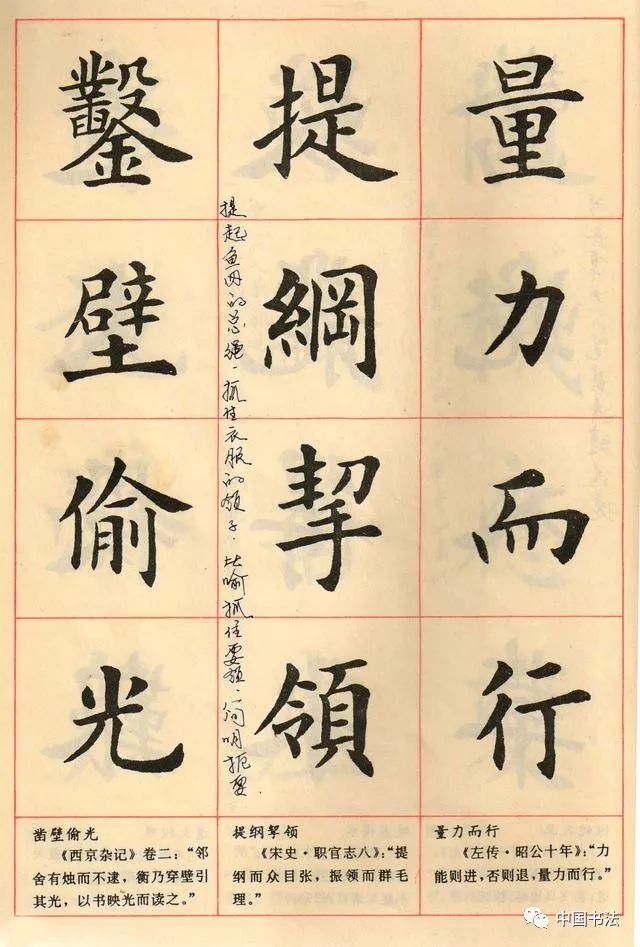 量力而行
提綱挈領
提起鱼网的总绳,抓住衣服的领子.比喻抓住要领,简明扼要.
鑿壁偷光
量力而行
《左传·昭公十年》:“力
能则进,否则退,量力而行。”
提纲挈领
《宋史·职官志八》:“提
纲而众目张,振领而群毛
理。”
凿壁偷光
《西京杂记》卷二:“邻
舍有烛而不逮,衡乃穿壁引
其光,以书映光而读之。”
中国书法